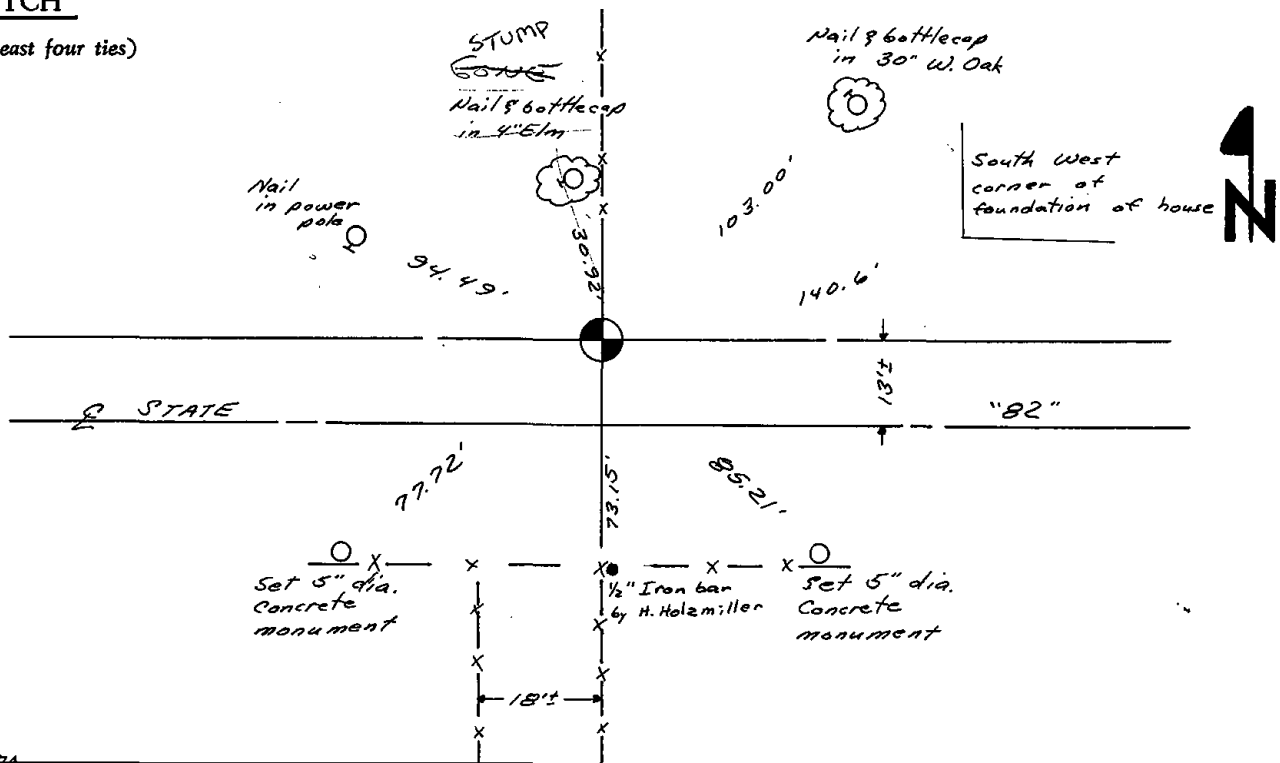 TCH
east four ties)
STUMP
GONE
Nail & bottlecap
in 4" Elm
Nail & bottlecap
in 30" W. Oak
South West
corner of
foundation of house
N
Nail
in power
pole
94.49'
30.92'
103.00'
140.6'
13'±
℄ STATE
"82"
77.72'
73.15'
85.21'
Set 5" dia.
Concrete
monument
1/2" Iron bar
by H. Holzmiller
Set 5" dia.
Concrete
monument
18'±